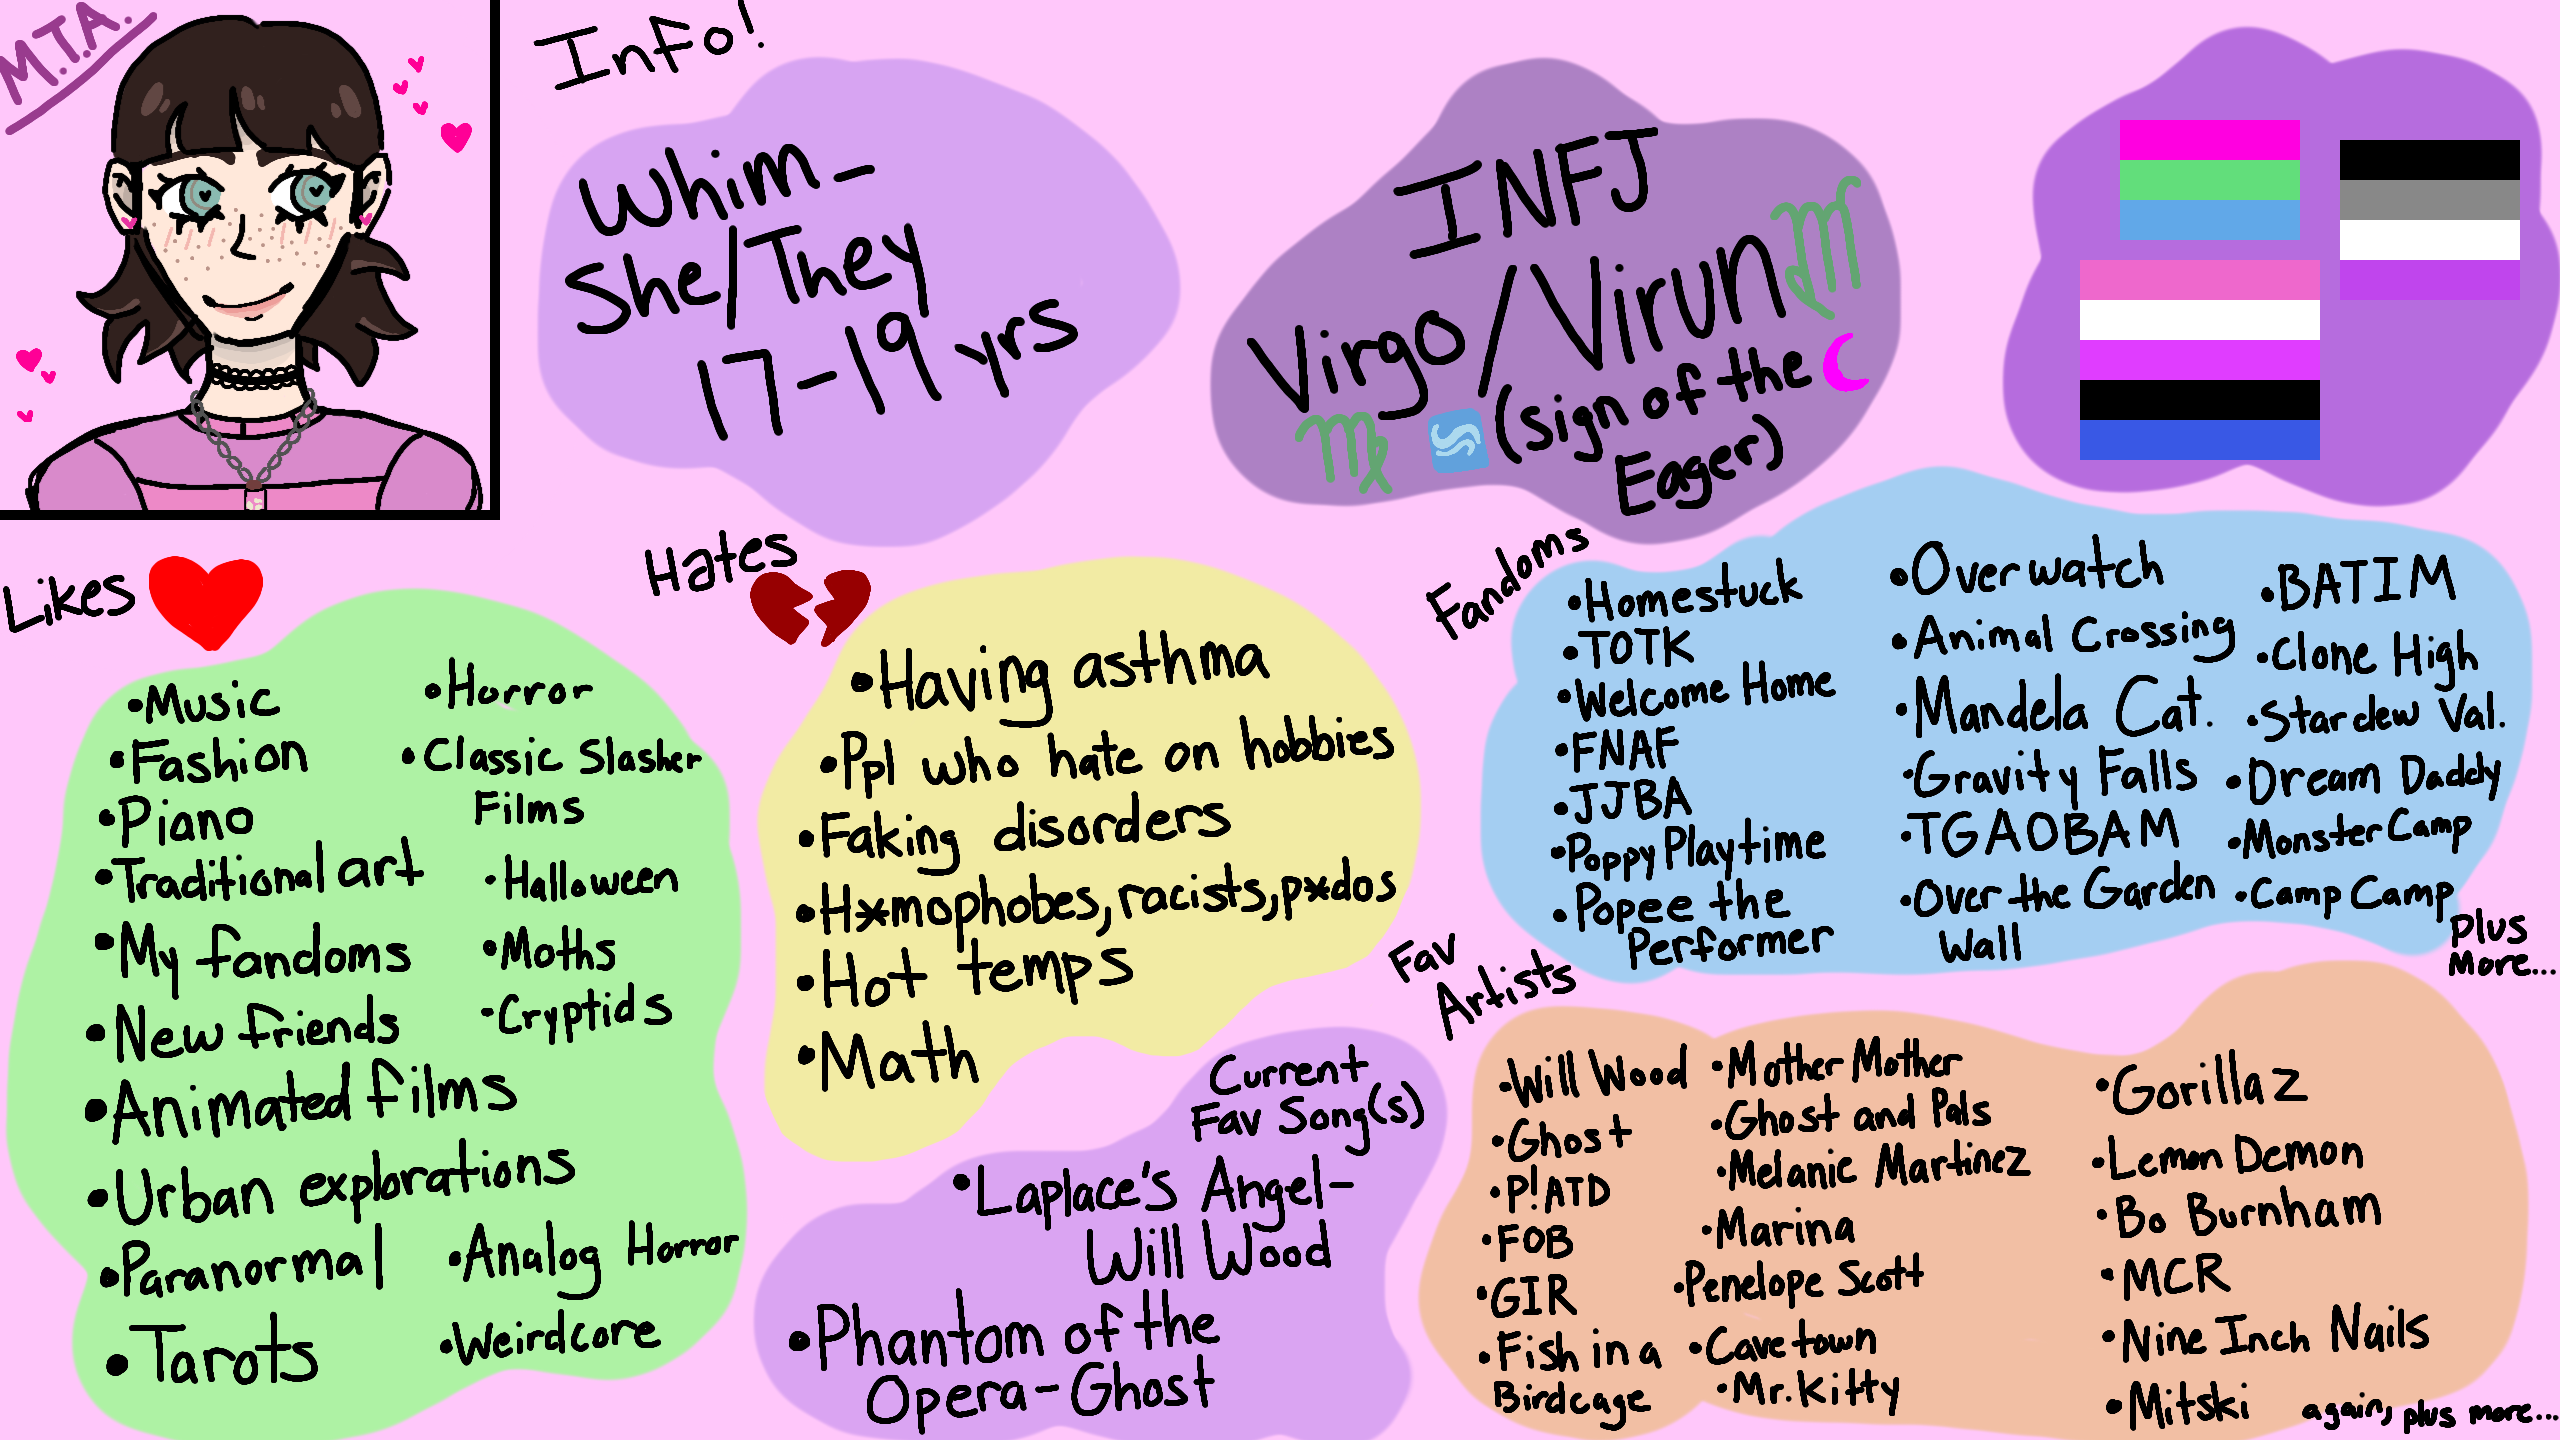 M.T.A.
Info!
Whim_
She/They
17-19 yrs
INFJ
Virgo/Virun
(sign of the
Eager)
Likes
•Music
•Fashion
•Piano
•Traditional art
•My fandoms
•New friends
•Animated films
•Urban explorations
•Paranormal
•Tarots
•Horror
•Classic Slasher
Films
•Halloween
•Moths
•Cryptids
•Analog Horror
•Weirdcore
Hates
•Having asthma
•Ppl who hate on hobbies
•Faking disorders
•H*mophobes, racists, p*dos
•Hot temps
•Math
Current
Fav Song(s)
•Laplace's Angel-
Will Wood
•Phantom of the
Opera-Ghost
Fandoms
•Homestuck
•TOTK
•Welcome Home
•FNAF
•JJBA
•Poppy Playtime
•Popee the
Performer
•Overwatch
•Animal Crossing
•Mandela Cat.
•Gravity Falls
•TGAOBAM
•Over the Garden
Wall
•BATIM
•Clone High
•Stardew Val.
•Dream Daddy
•Monster Camp
•Camp Camp
Plus
More...
Fav
Artists
•Will Wood
•Ghost
•P!ATD
•FOB
•GIR
•Fish in a
Birdcage
•Mother Mother
•Ghost and Pals
•Melanie Martinez
•Marina
•Penelope Scott
•Cavetown
•Mr.Kitty
•Gorillaz
•Lemon Demon
•Bo Burnham
•MCR
•Nine Inch Nails
•Mitski
again, plus more...